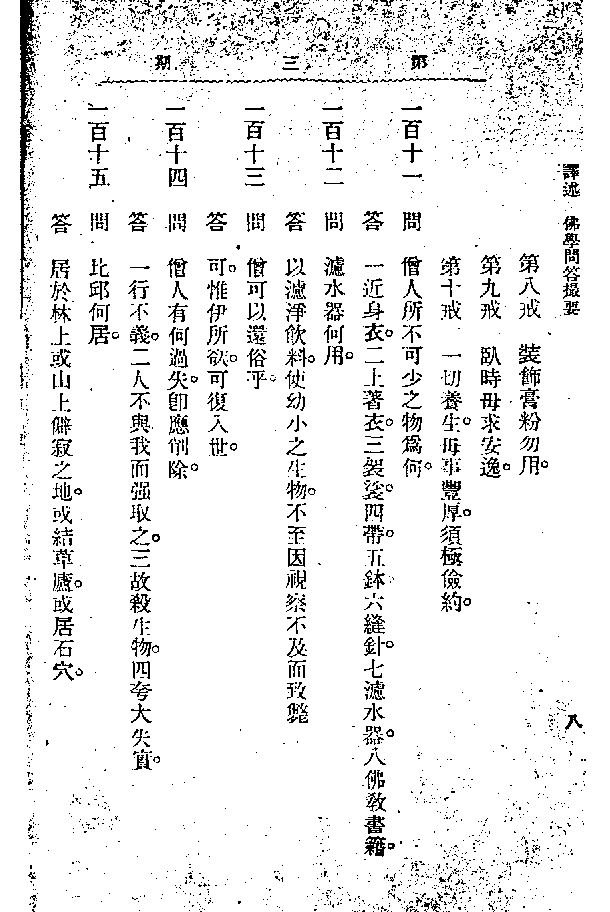 第三期
譯述　佛學問答撮要
八
第八戒　裝飾膏粉勿用。
第九戒　臥時毋求安逸。
第十戒　一切養生毋事豐厚。須極儉約。
一百十一　問　僧人所不可少之物爲何。
答　一近身衣。二上著衣。三袈裟。四帶。五鉢。六縫針。七濾水器。八佛敎書籍。
一百十二　問　濾水器何用。
答　以濾淨飲料。使幼小之生物。不至因視察不及而致斃
一百十三　問　僧可以還俗乎。
答　可。惟伊所欲。可復入世。
一百十四　問　僧人有何過失。卽應削除。
答　一行不義。二人不與我而强取之。三故殺生物。四夸大失實。
一百十五　問　比邱何居。
答　居於林上或山上僻寂之地。或結草廬。或居石穴。